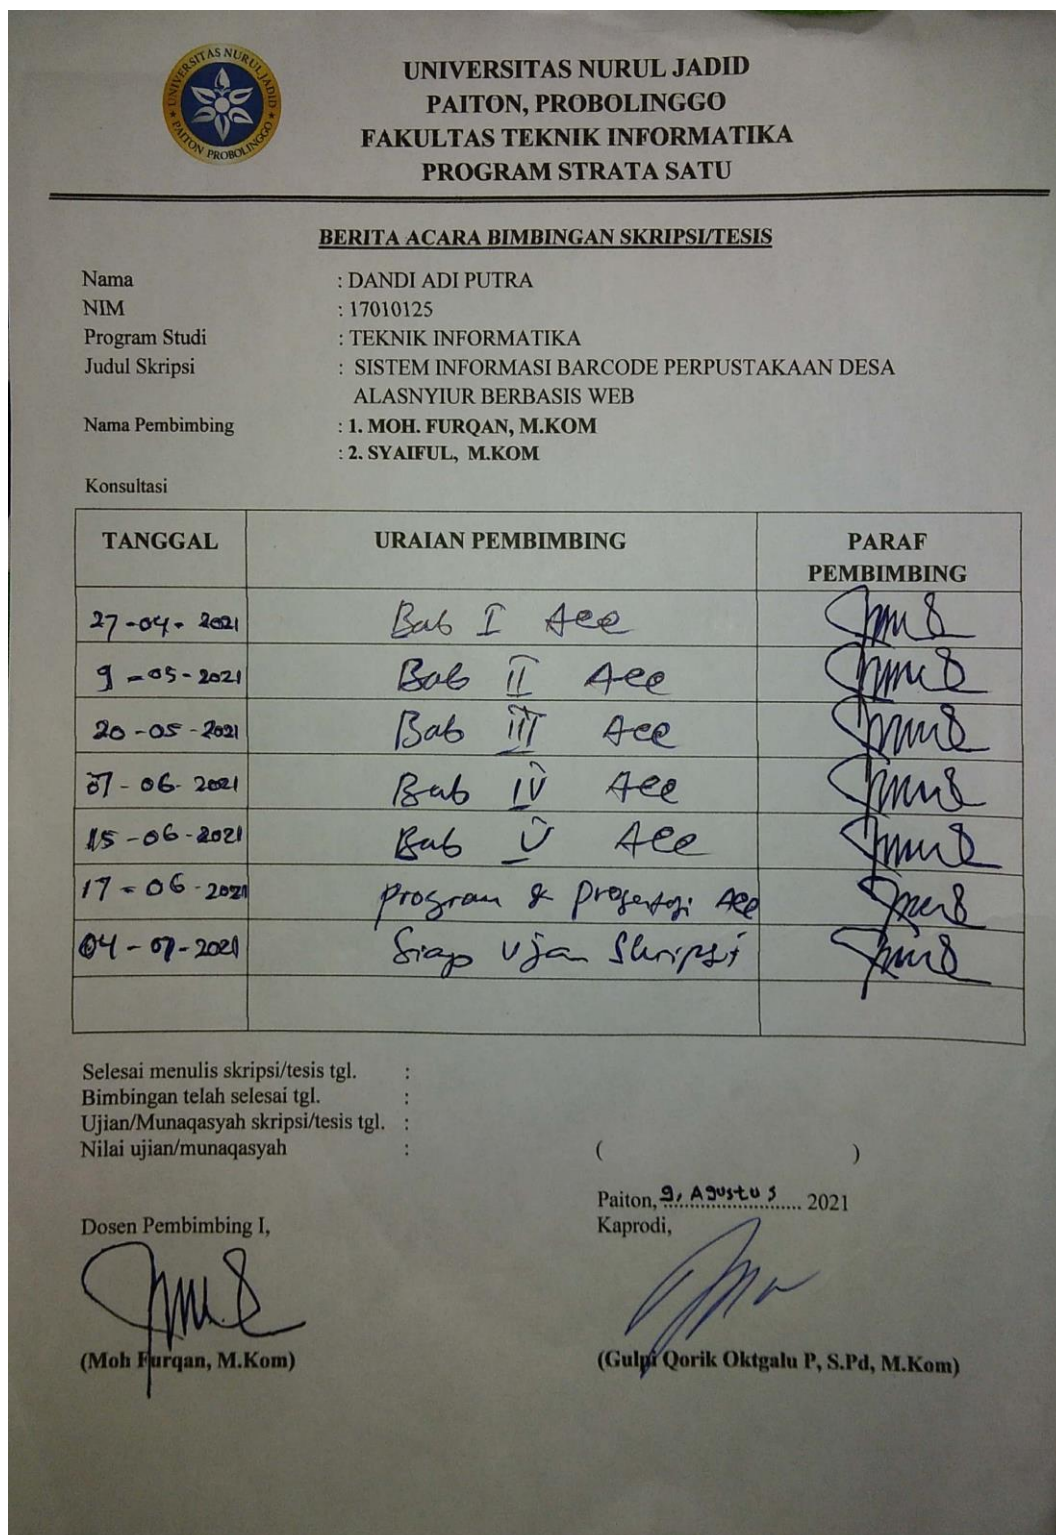 UNIVERSITAS NURUL JADID
PAITON PROBOLINGGO
UNIVERSITAS NURUL JADID
PAITON, PROBOLINGGO
FAKULTAS TEKNIK INFORMATIKA
PROGRAM STRATA SATU
BERITA ACARA BIMBINGAN SKRIPSI/TESIS
Nama : DANDI ADI PUTRA
NIM : 17010125
Program Studi : TEKNIK INFORMATIKA
Judul Skripsi : SISTEM INFORMASI BARCODE PERPUSTAKAAN DESA
ALASNYIUR BERBASIS WEB
Nama Pembimbing : 1. MOH. FURQAN, M.KOM
: 2. SYAIFUL, M.KOM
Konsultasi
TANGGAL URAIAN PEMBIMBING PARAF
PEMBIMBING
27-04-2021 Bab I Acc
9-05-2021 Bab II Acc
20-05-2021 Bab III Acc
07-06-2021 Bab IV Acc
15-06-2021 Bab V Acc
17-06-2021 program & Acc
04-07-2021 Siap Ujan Skripsi
Selesai menulis skripsi/tesis tgl. :
Bimbingan telah selesai tgl. :
Ujian/Munaqasyah skripsi/tesis tgl. :
Nilai ujian/munaqasyah : ( )
Paiton, 9, Agustus 2021
Dosen Pembimbing I, Kaprodi,
(Moh Furqan, M.Kom) (Gulpi Qorik Oktgalu P, S.Pd, M.Kom)